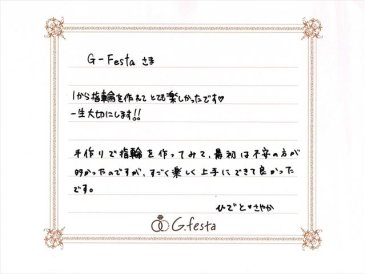 G-Festa さま
1から指輪を作れてとても楽しかったです♡
一生大切にします!!
手作りで指輪を作ってみて、最初は不安の方が
多かったのですが、すごく楽しく上手にできて良かった
です。
ひでと♥さやか
G.festa